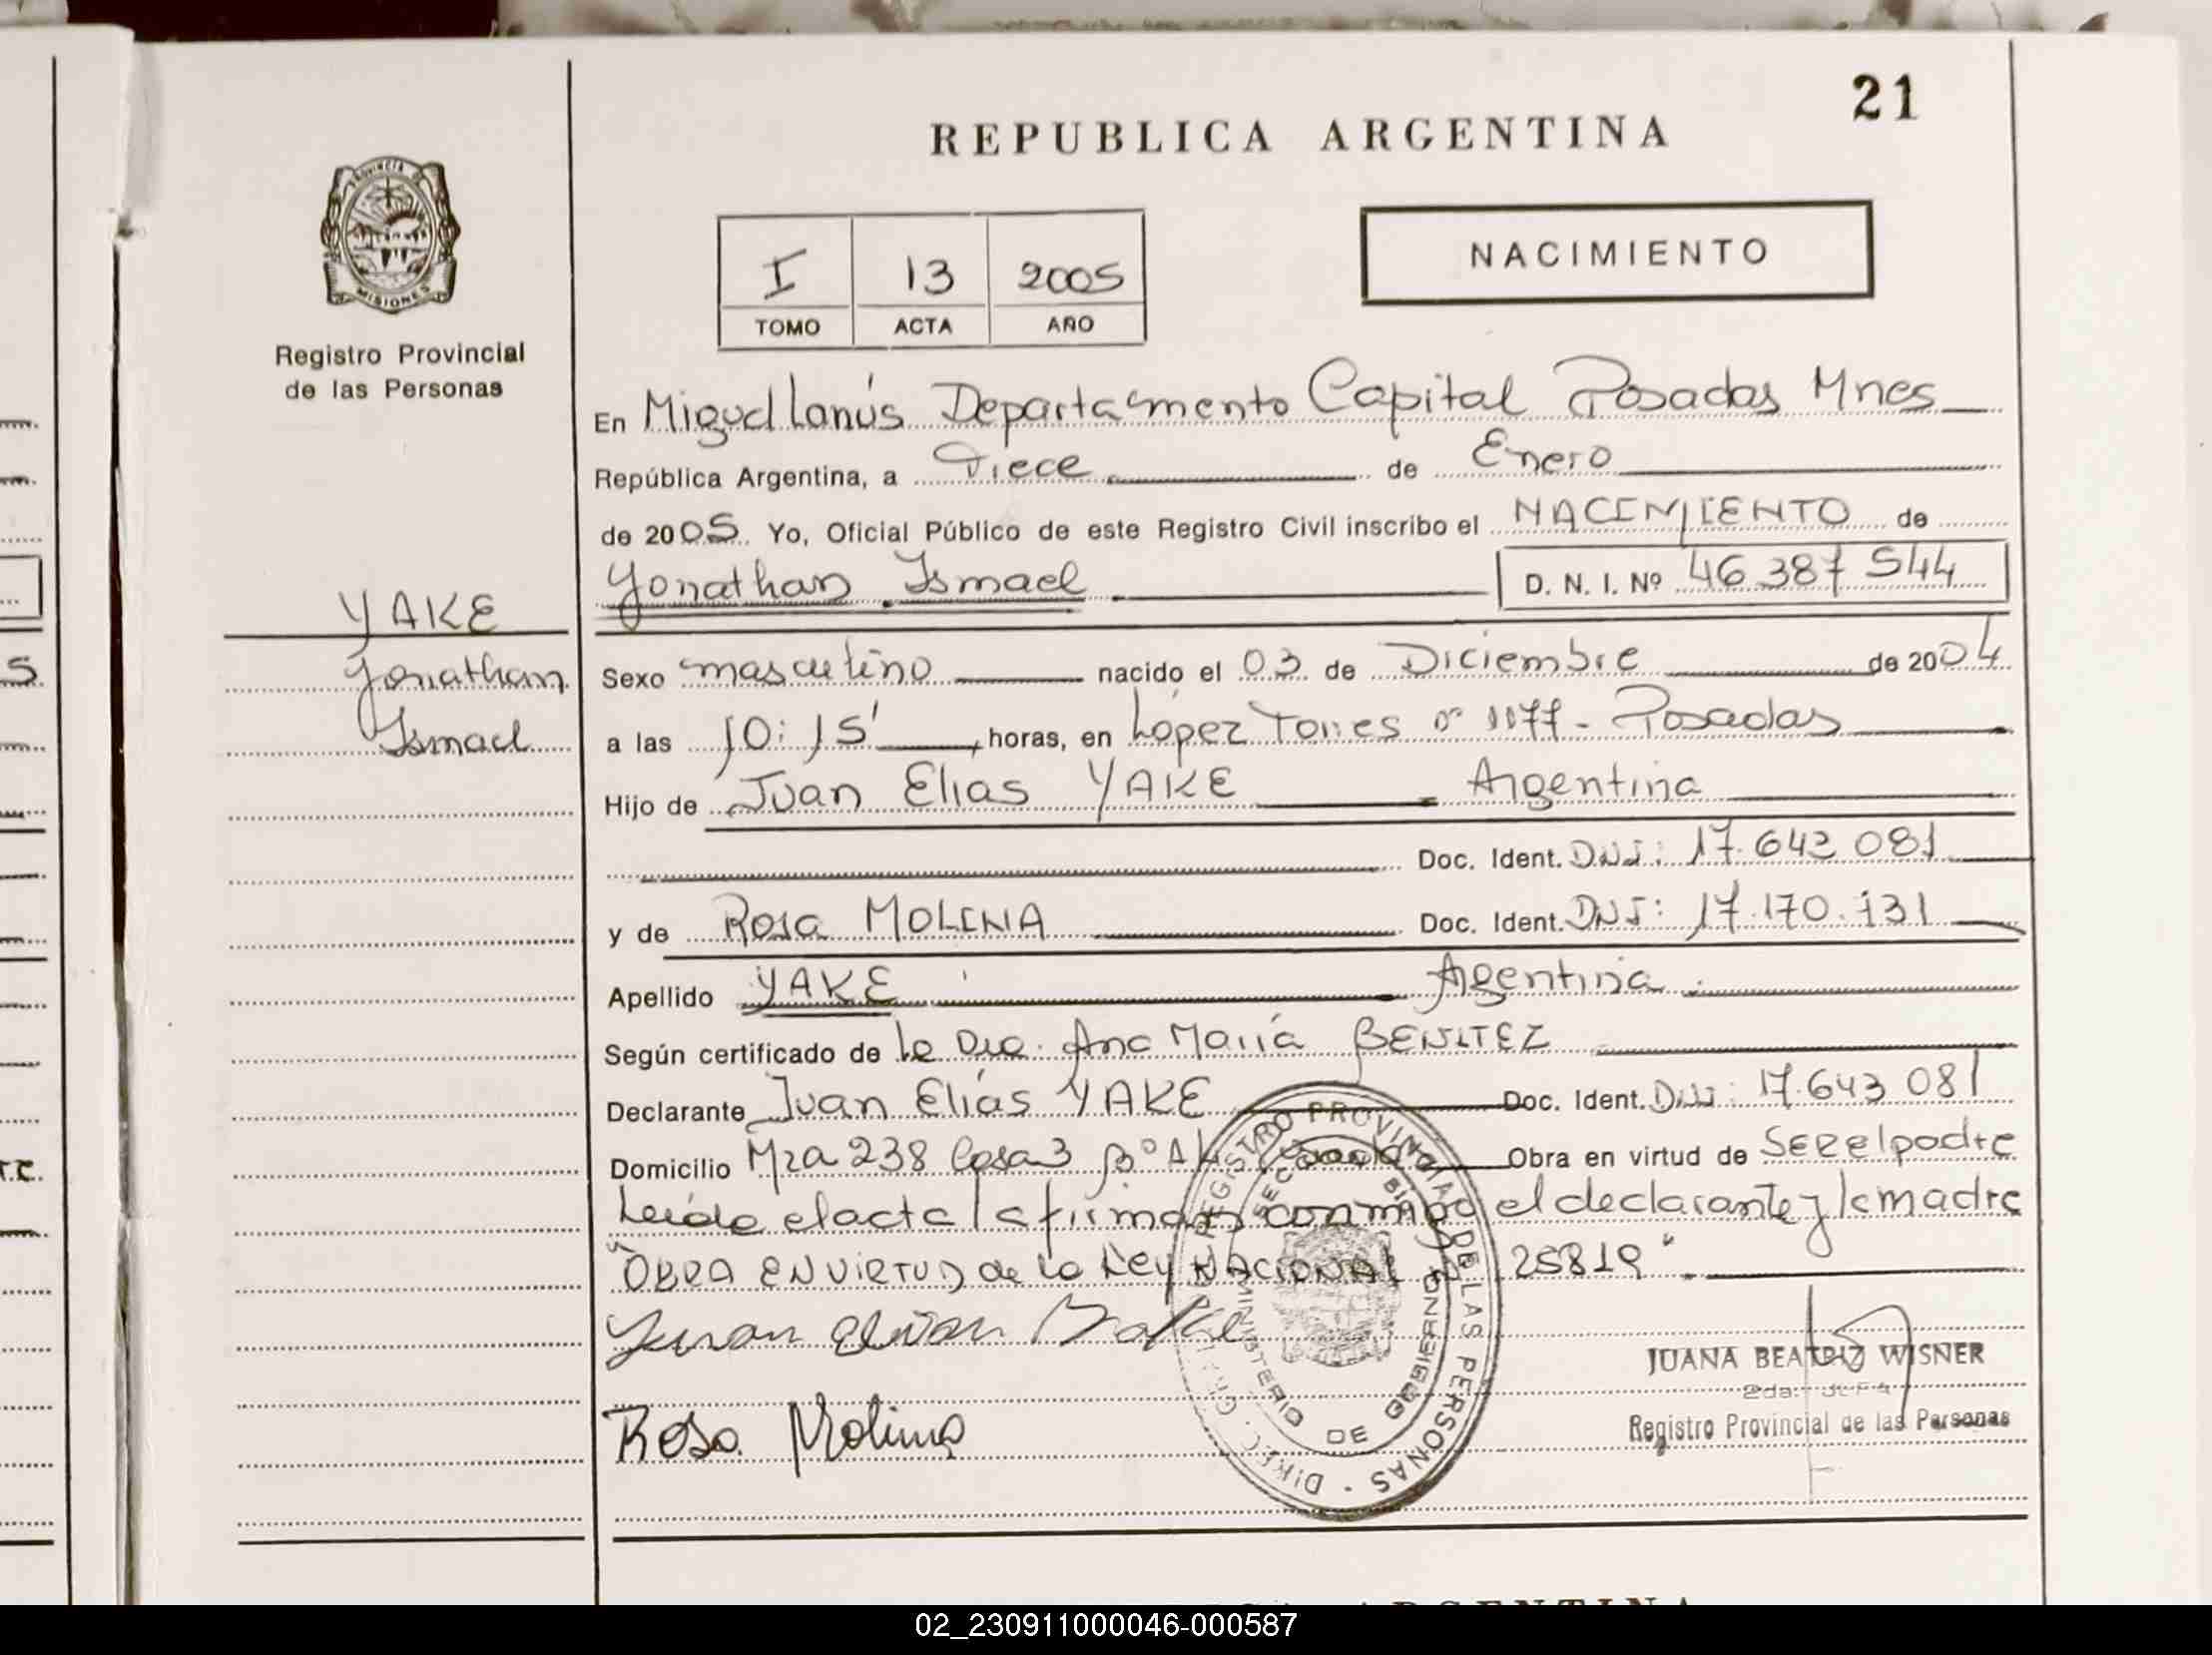 21
REPUBLICA ARGENTINA
NACIMIENTO
PROVINCIA DE
MISIONES
Registro Provincial
de las Personas
I 13 2005
TOMO ACTA AÑO
En Miguel Lanús Departamento Capital Posadas Mnes
República Argentina, a Trece de Enero
de 2005 Yo, Oficial Público de este Registro Civil inscribo el NACIMIENTO de
Yonathan Ismael D. N. I. Nº 46 387 544
YAKE
Yonathan
Ismael
Sexo masculino nacido el 03 de Diciembre de 2004
a las 10:15' horas, en López Torres nº 1177 - Posadas
Hijo de Juan Elias YAKE Argentina
Doc. Ident. DNI: 17.643 081
y de Rosa MOLINA Doc. Ident. DNI: 17.170.131
Apellido YAKE Argentina
Según certificado de la Dra. Ana María BENITEZ
Declarante Juan Elías YAKE Doc. Ident. DNI: 17.643 081
Domicilio Mza 238 Casa 3 Bº Obra en virtud de SER el padre
Leída el acta la firman conmigo el declarante y la madre
"OBRA EN VIRTUD de la Ley NACIONAL Nº 25819"
Juan Elias Yake
Rosa Molina
REGISTRO PROVINCIAL DE LAS PERSONAS
MINISTERIO DE GOBIERNO
JUANA BEATRIZ WISNER
2da. JEFA
Registro Provincial de las Personas
02_230911000046-000587